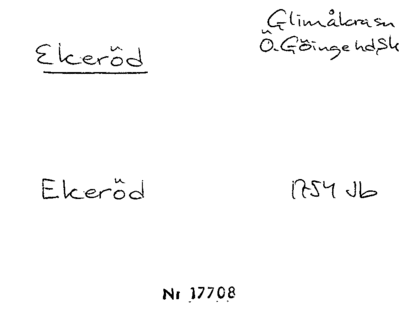 Ekeröd
Glimåkra sn
Ö. Göinge hd, Sk
Ekeröd
1754 Jb
Nr 17708